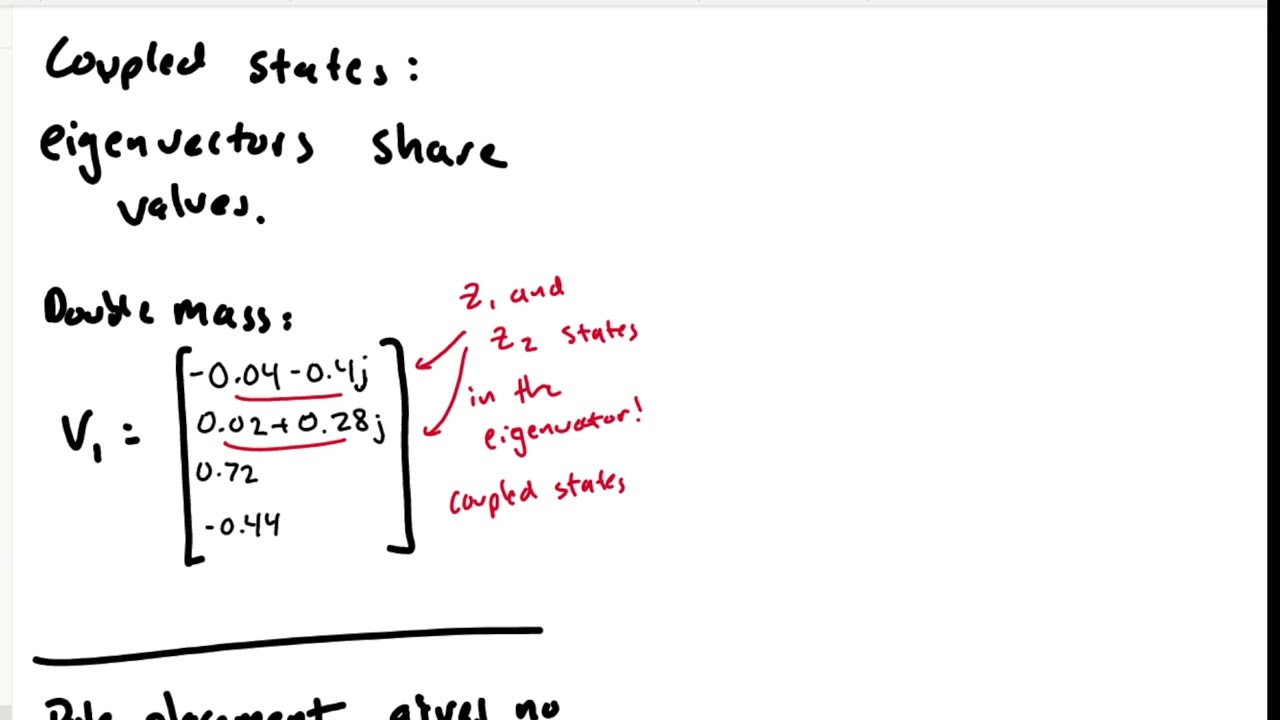 Coupled states:
eigenvectors share
values.
Double mass:
V₁ =
-0.04 -0.4j
0.02 + 0.28j
0.72
-0.44
z₁ and
z₂ states
in the
eigenvector!
coupled states
Pole placement gives no